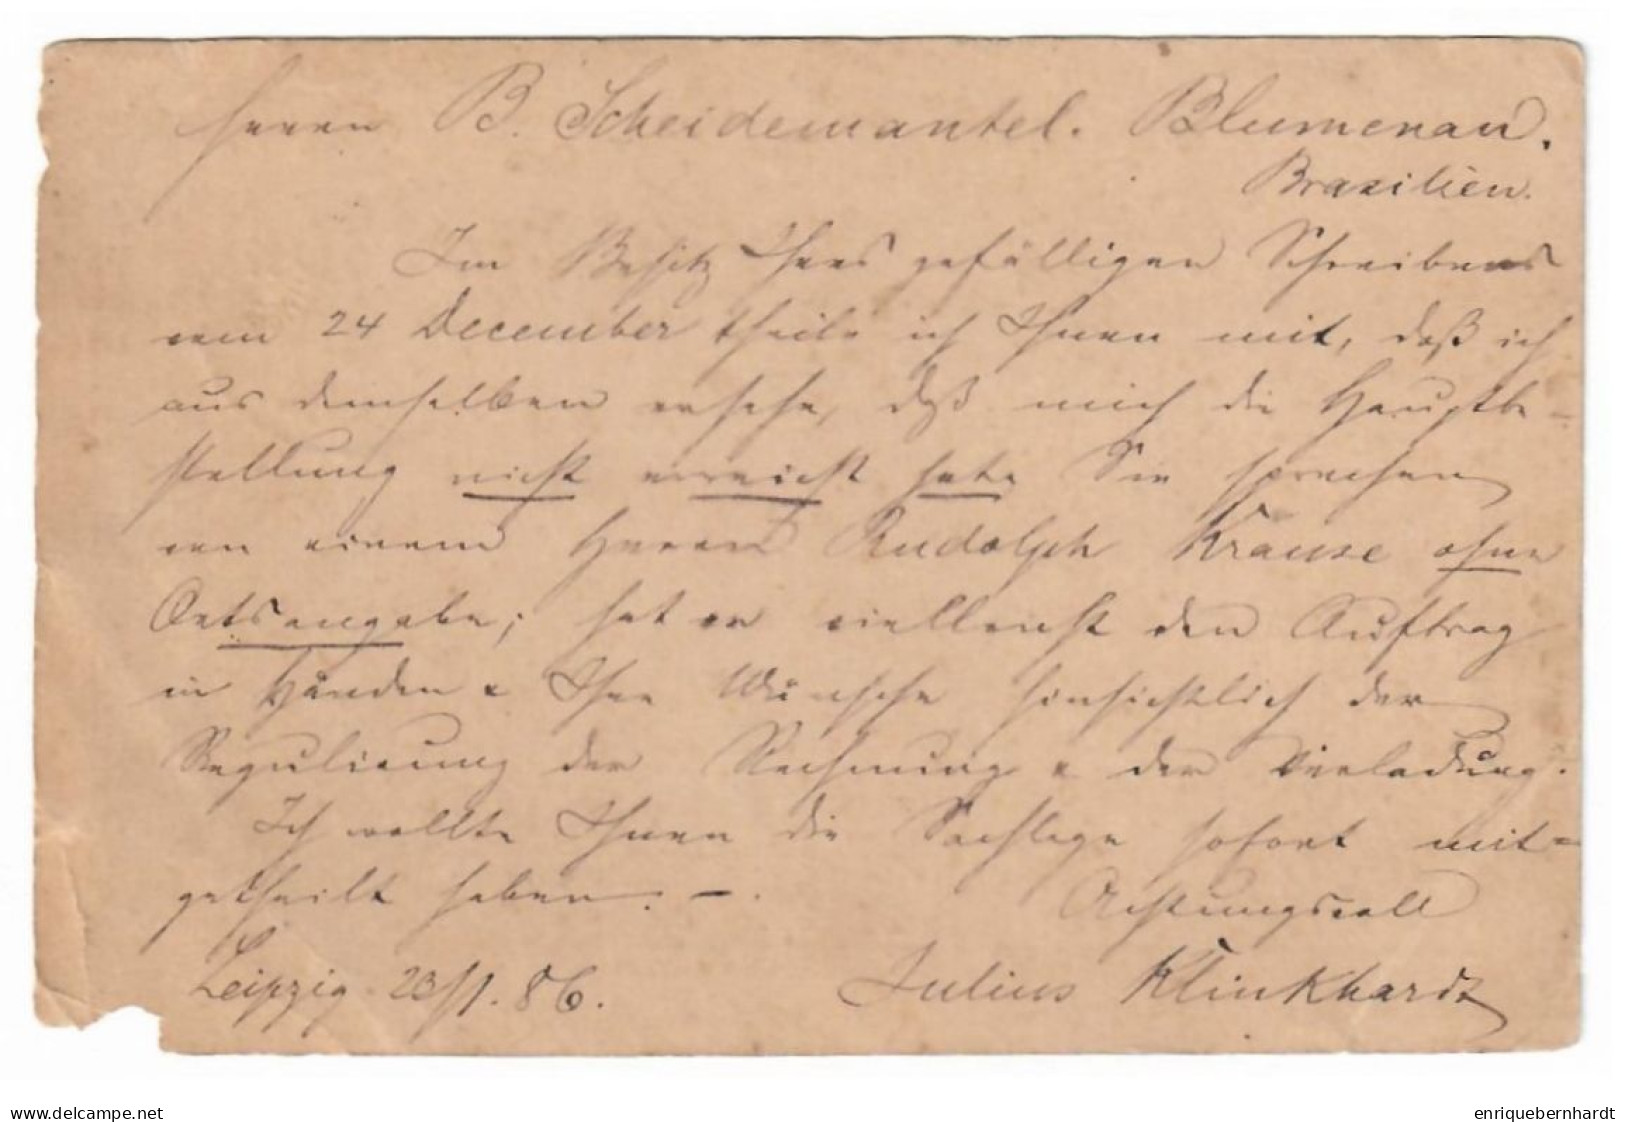 Herrn B. Scheidemantel. Blumenau.
Brasilien.
Im Besitz Ihres gefälligen Schreibens
vom 24 December theile ich Ihnen mit, daß ich
aus demselben ersehe, daß mich die Hauptbe-
stellung nicht erreicht hat. Sie sprechen
von einem Herrn Rudolph Krause ohne
Ortsangabe; hat er vielleicht den Auftrag
in Händen & Ihre Wünsche hinsichtlich der
Regulirung der Rechnung & der Verladung.
Ich wollte Ihnen die Sachlage sofort mit=
getheilt haben. –.
Achtungsvoll
Leipzig 23/1. 86. Julius Klinkhardt
www.delcampe.net
enriquebernhardt